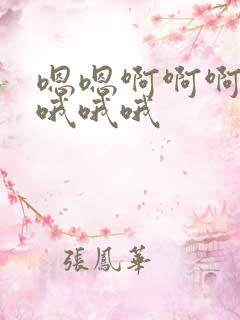 嗯嗯啊啊啊
哦哦哦
張鳳華